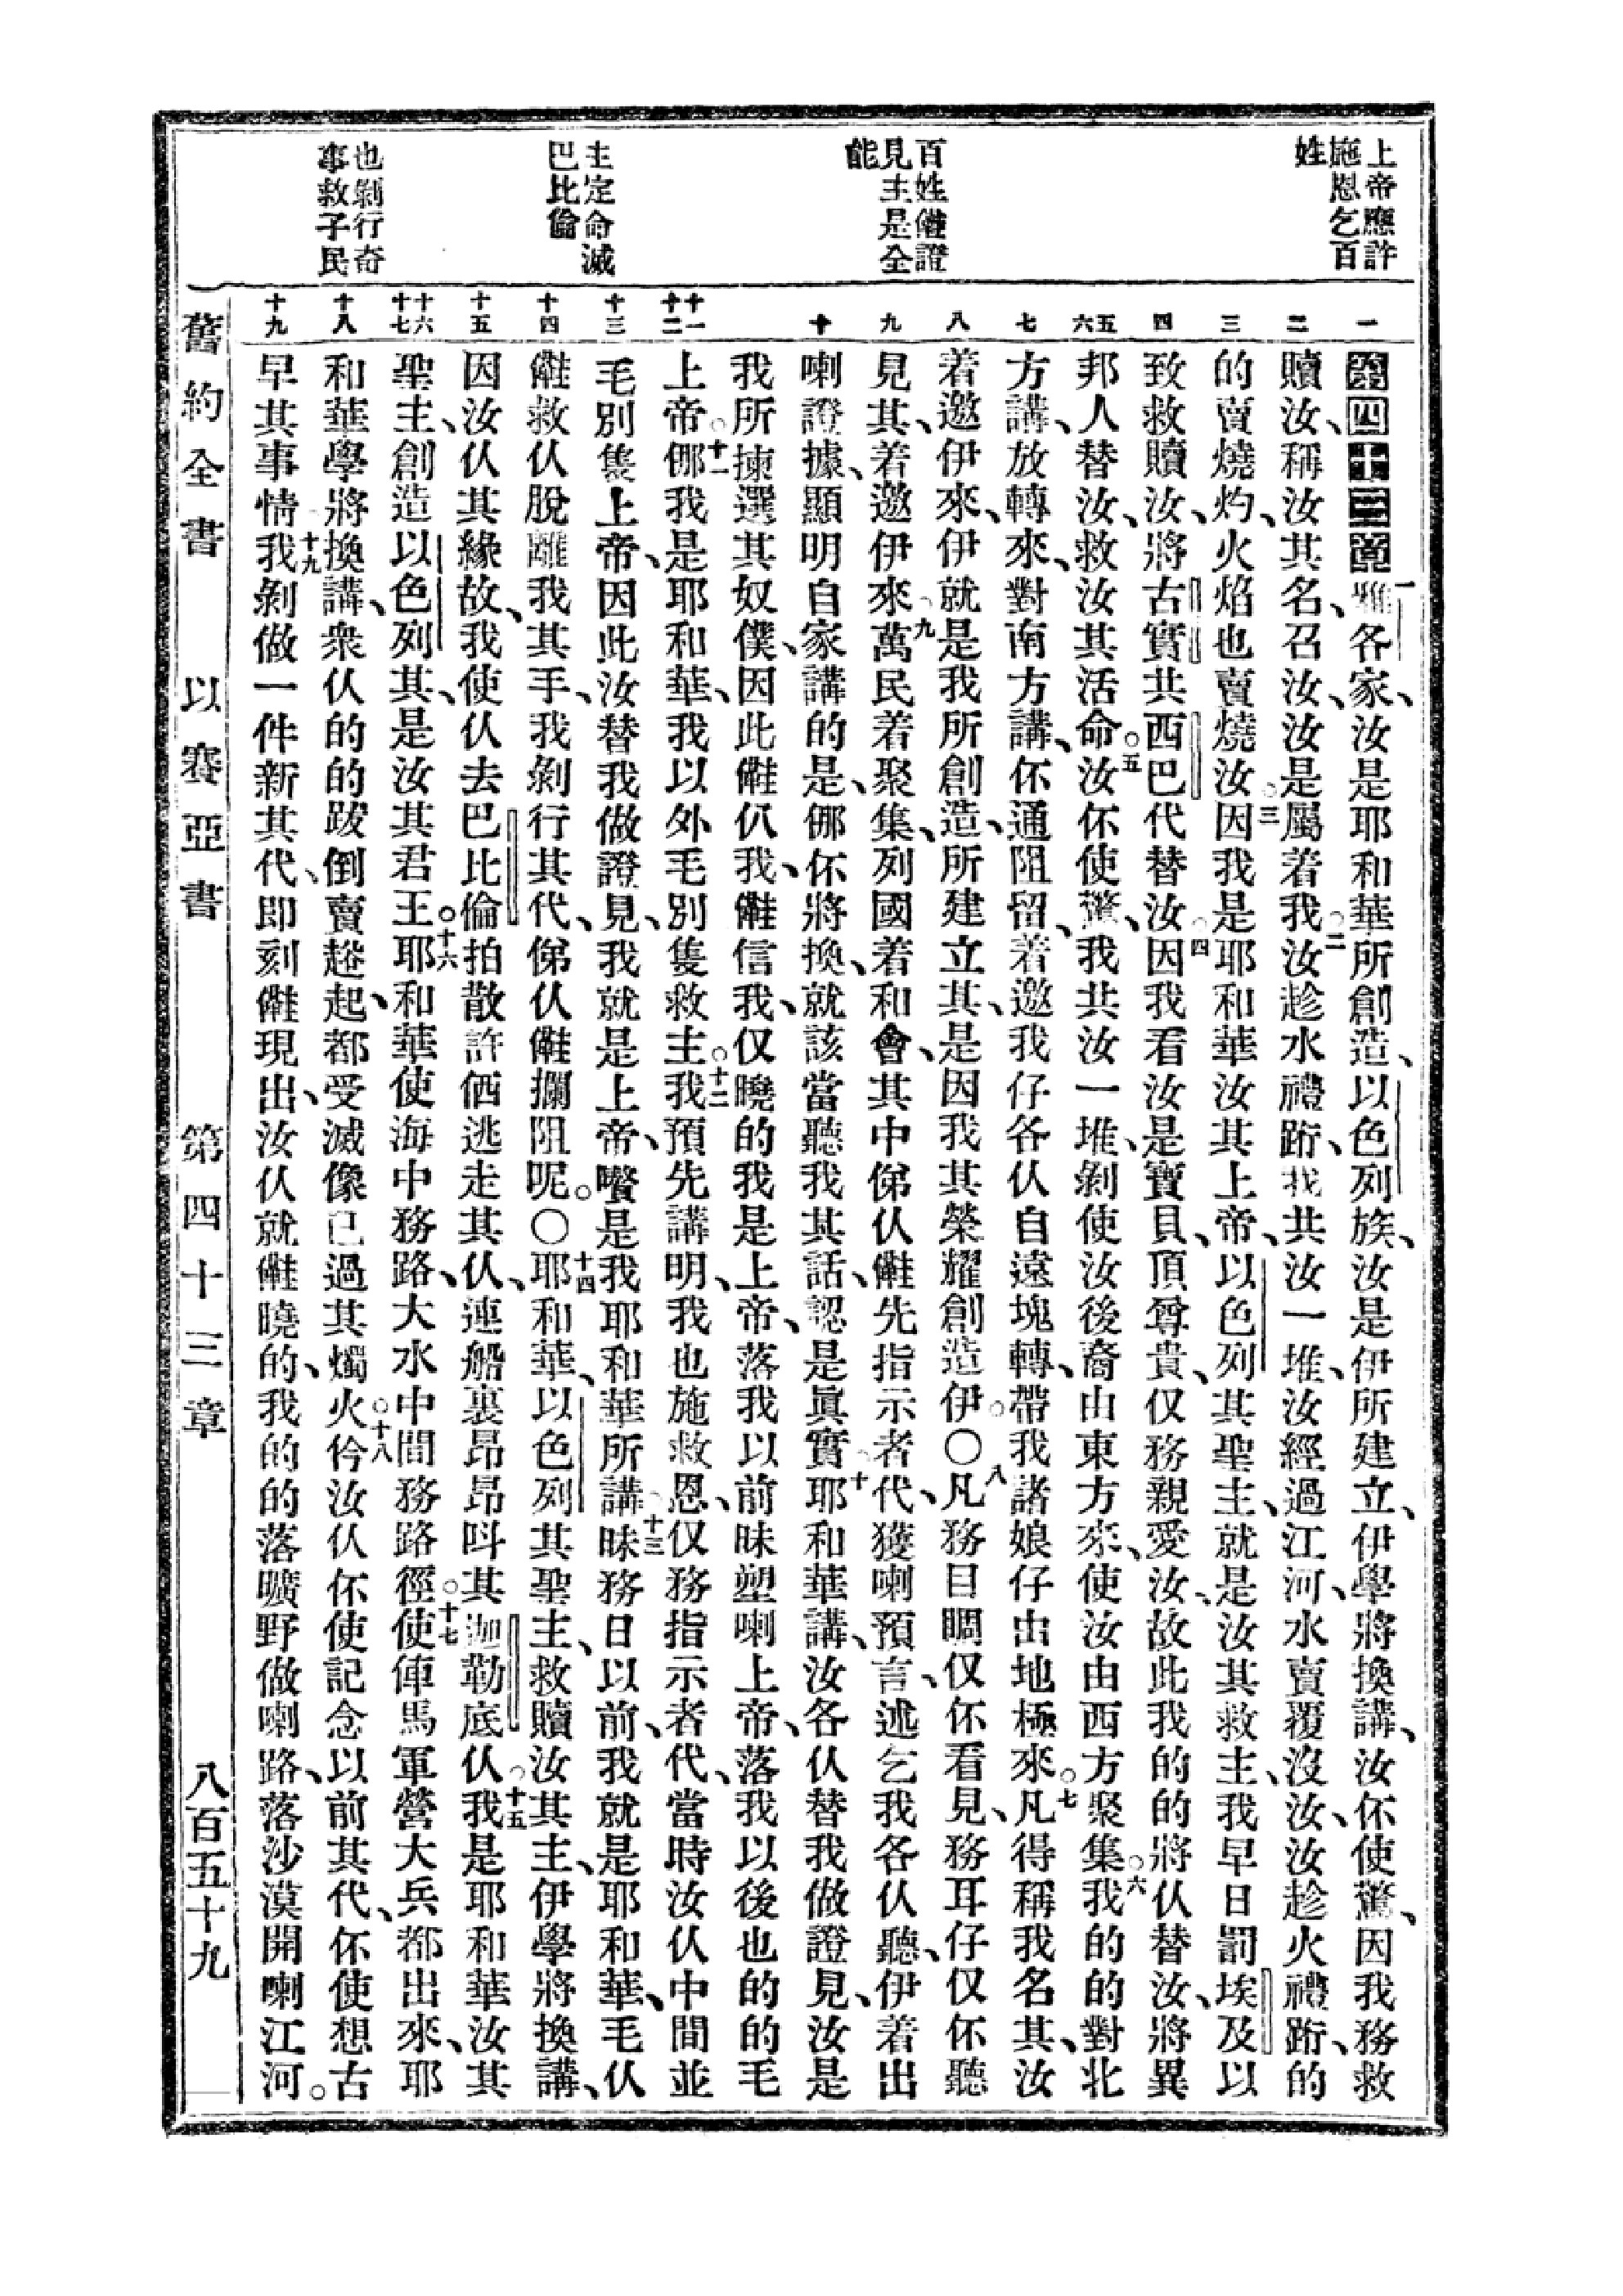 上帝應許
施恩乞百
姓
百姓㑽證
見主是全
能
主定命滅
巴比倫
也剝行奇
事救子民
一
二
三
四
五
六
七
八
九
十
十一
十二
十三
十四
十五
十六
十七
十八
十九
第四十三章一雅各家、汝是耶和華所創造、以色列族、汝是伊所建立、伊學將換講、汝伓使驚、因我務救
贖汝、稱汝其名、召汝、汝是屬着我。二汝趁水禮跨、我共汝一堆、汝經過江河、水賣覆沒汝、汝趁火禮跨、的
的賣燒灼、火焰也賣燒汝。三因我是耶和華汝其上帝、以色列其聖主、就是汝其救主、我早日罰埃及以
致救贖汝、將古實共西巴代替汝。四因我看汝是寶貝、頂尊貴、仅務親愛汝、故此我的的將仈替汝、將異
邦人替汝、救汝其活命。五汝伓使驚、我共汝一堆、剝使汝後裔由東方來、使汝由西方聚集。六我的的對北
方講、放轉來、對南方講、伓通阻留、着邀我仔各仈自遠塊轉、帶我諸娘仔由地極來。七凡得稱我名其、汝
着邀伊來、伊就是我所創造、所建立其、是因我其榮耀創造伊。〇八凡務目睭仅伓看見、務耳仔仅伓聽
見其、着邀伊來。九萬民着聚集、列國着和會、其中俤仈㑽先指示者代、獲喇預言、述乞我各仈聽、伊着出
喇證據、顯明自家講的是、㑚伓將換、就該當聽我其話、認是眞實。十耶和華講、汝各仈替我做證見、汝是
我所揀選其奴僕、因此㑽仈我、㑽信我、仅曉的我是上帝、落我以前昧塑喇上帝、落我以後也的的毛
上帝。十一㑚我是耶和華、我以外毛別隻救主。十二我預先講明、我也施救恩、仅務指示者代、當時汝仈中間並
毛別隻上帝、因此汝替我做證見、我就是上帝、嚽是我耶和華所講。十三昧務日以前、我就是耶和華、毛仈
㑽救仈脫離我其手、我剝行其代、俤仈㑽攔阻呢。〇十四耶和華、以色列其聖主、救贖汝其主、伊學將換講、
因汝仈其緣故、我使仈去巴比倫拍散許𠊎逃走其仈、連船裏昂昂呌其迦勒底仈。十五我是耶和華、汝其
聖主、創造以色列其、是汝其君王。十六耶和華使海中務路、大水中間務路徑。十七使俥馬軍營大兵都出來、耶
和華學將換講、衆仈的的跋倒賣趤起、都受滅像已過其燭火。十八仱汝仈伓使記念以前其代、伓使想古
早其事情。十九我剝做一件新其代、即刻㑽現出、汝仈就㑽曉的、我的的落曠野做喇路、落沙漠開喇江河。
舊約全書 以賽亞書 第四十三章 八百五十九